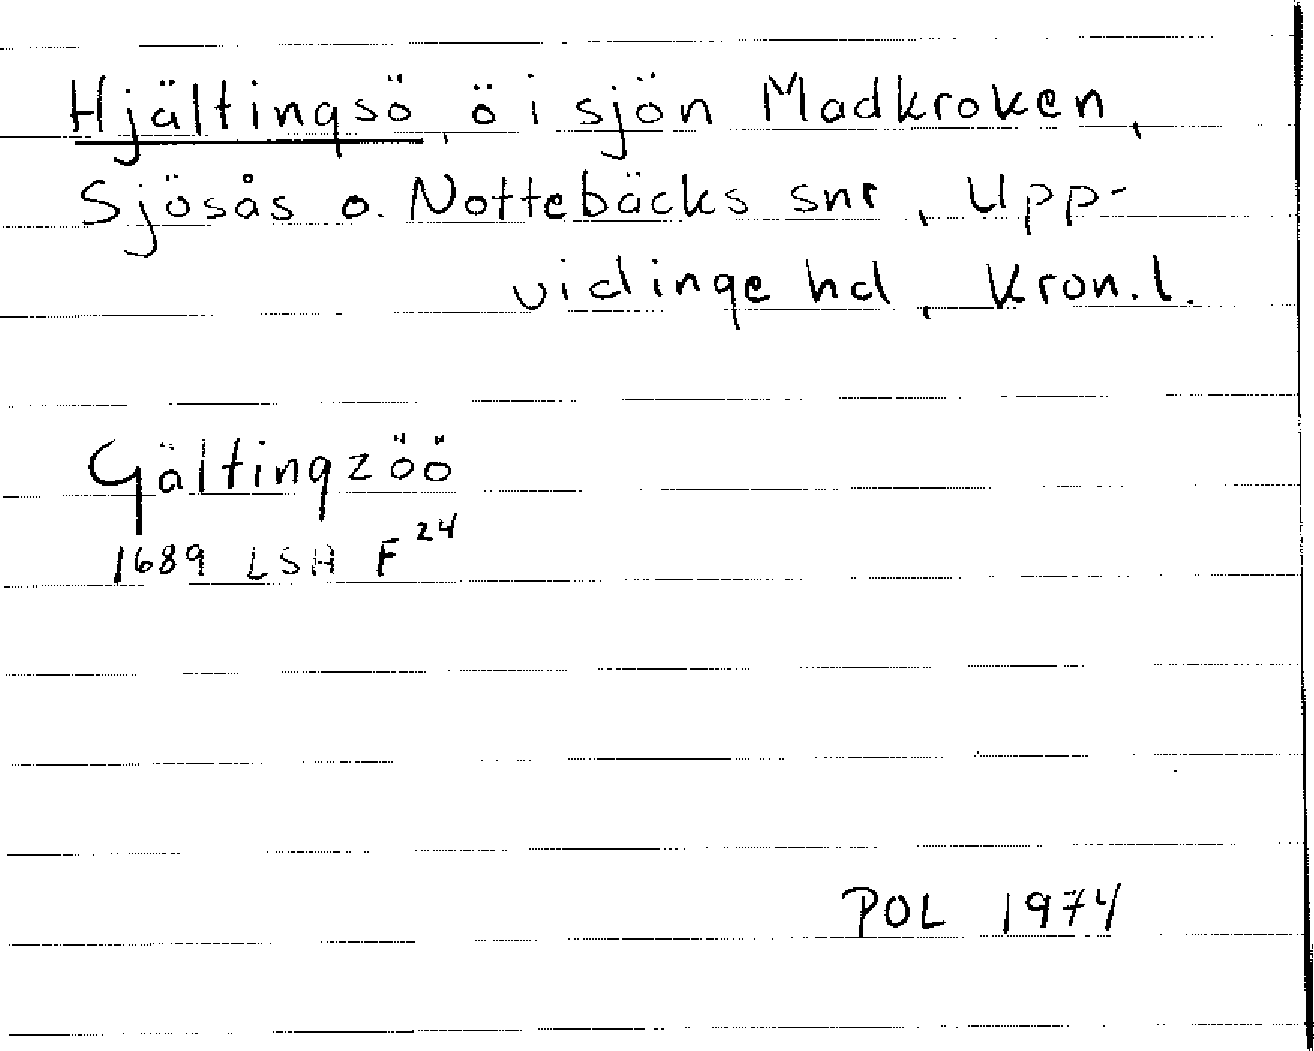 Hjältingsö, ö i sjön Madkroken,
Sjösås o. Nottebäcks snr, Upp-
vidinge hd, Kron.l.
Gältingzöö
1689 LSH F 24
POL 1974